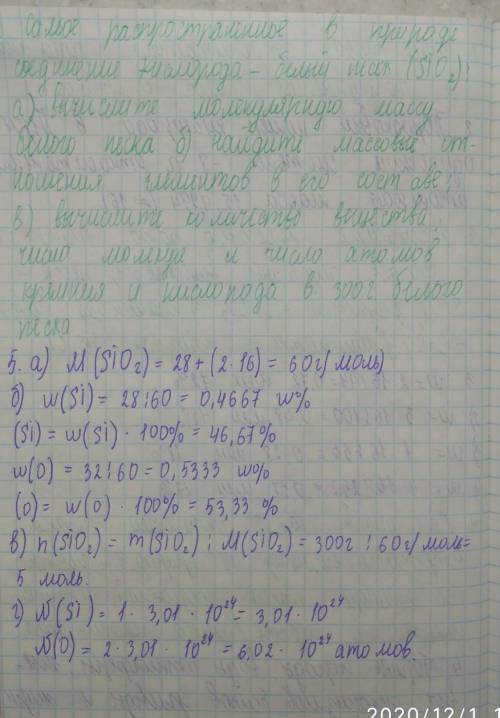 Самое распространенное в природе
соединение кислорода – белый песок (SiO₂):
а) вычислите молекулярную массу
белого песка б) найдите массовые от-
ношения элементов в его составе;
в) вычислите количество вещества,
число молекул и число атомов
кремния и кислорода в 300г белого
песка
5. а) M(SiO₂) = 28 + (2·16) = 60 г/моль)
б) w(Si) = 28:60 = 0,4667 w%
(Si) = w(Si) · 100% = 46,67%
w(O) = 32:60 = 0,5333 w%
(O) = w(O) · 100% = 53,33 %
в) n(SiO₂) = m(SiO₂) : M(SiO₂) = 300г : 60г/моль=
5 моль.
г) N(Si) = 1 · 3,01 · 10²⁴ = 3,01 · 10²⁴
N(O) = 2 · 3,01 · 10²⁴ = 6,02 · 10²⁴ атомов.
2020/12/1